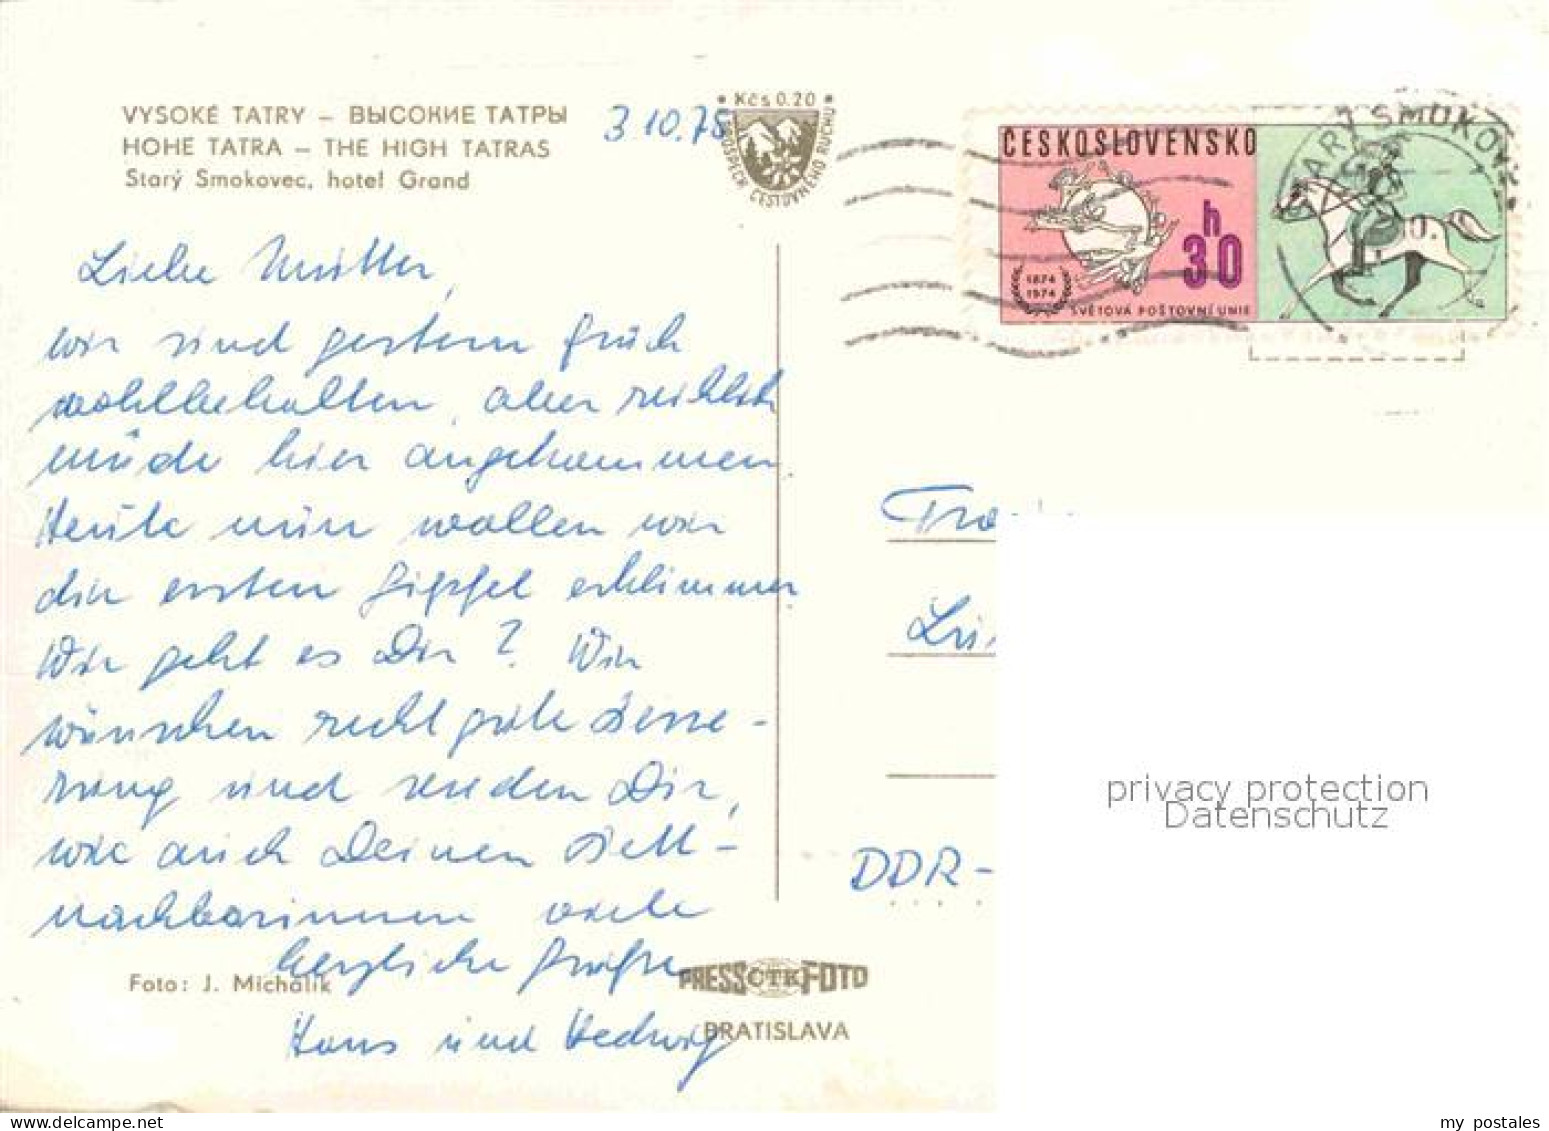 VYSOKÉ TATRY – ВЫСОКИЕ ТАТРЫ
HOHE TATRA – THE HIGH TATRAS
Starý Smokovec, hotel Grand
3.10.75
• Kčs 0.20 •
PROSPECH CESTOVNÉHO RUCHU
ČESKOSLOVENSKO
h
30
1874
1974
SVĚTOVÁ POŠTOVNÍ UNIE
STARÝ SMOKOVEC
Liebe Mutter,
wir sind gestern früh
wohlbehalten, aber reichlich
müde hier angekommen.
Heute nun wollen wir
den ersten Gipfel erklimmen
Wie geht es Dir? Wir
wünschen recht gute Besse-
rung und senden Dir,
wie auch Deinen Bett-
nachbarinnen viele
herzliche Grüße
Hans und Hedwig
DDR-
Foto: J. Michálik
PRESSFOTO
ČTK
BRATISLAVA
privacy protection
Datenschutz
my postales